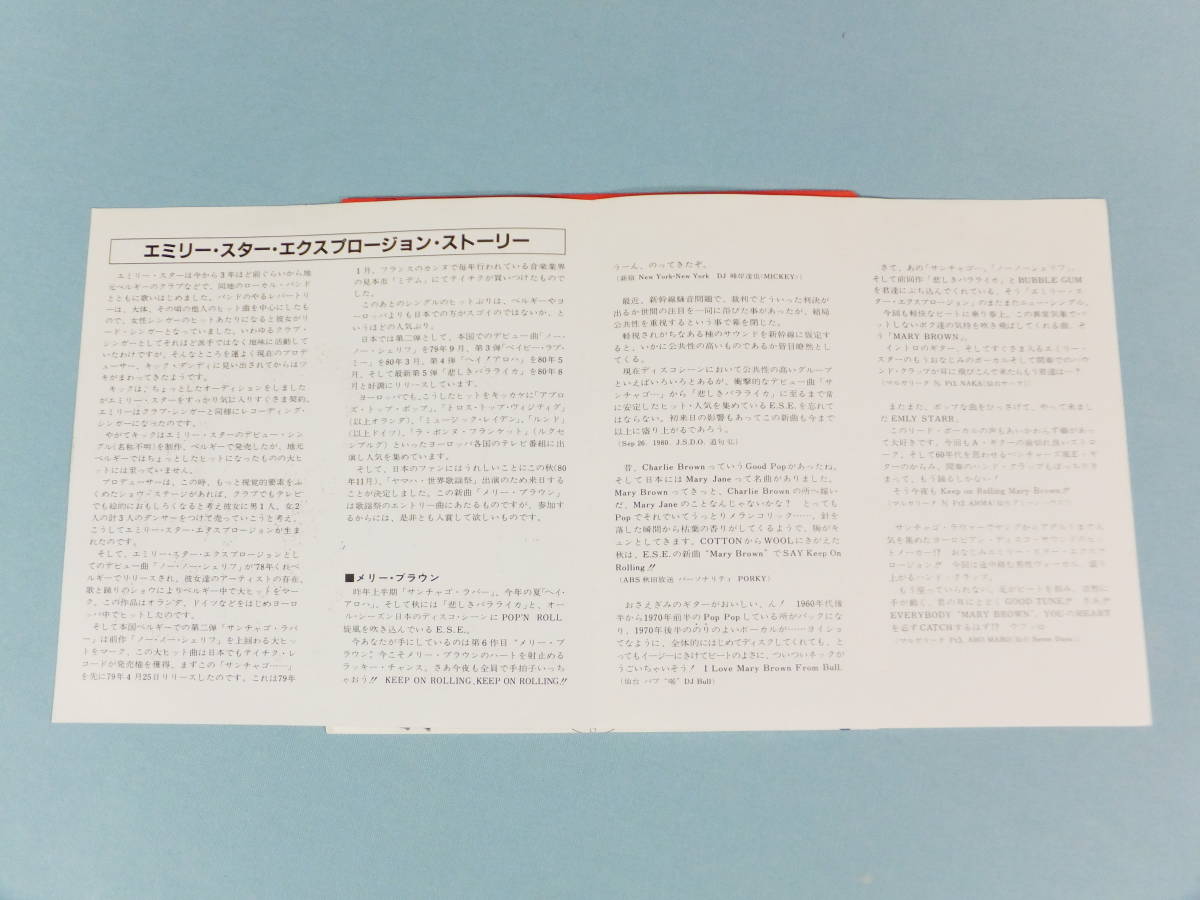 エミリー・スター・エクスプロージョン・ストーリー
エミリー・スターは今から3年ほど前ぐらいから地
元ベルギーのクラブなどで、同地のローカル・バンド
とともに歌いはじめました。バンドのやるレパートリ
ーは、大体、その頃の他人のヒット曲を中心にしたも
ので、女性シンガーのヒットあたりになると彼女がリ
ード・シンガーとなっていました。いわゆるクラブ・
シンガーとしてそれほど派手ではなく地味に活動して
いたわけですが、そんなところを運よく現在のプロデ
ューサー、キック・ダンディに見い出されてからはツ
キがまわってきたようです。
キックは、ちょっとしたオーディションをしました
がエミリー・スターをすっかり気に入りすぐさま契約。
エミリーはクラブ・シンガーと同様にレコーディング・
シンガーになったのです。
やがてキックはエミリー・スターのデビュー・シン
グル(名称不明)を制作、ベルギーで発売したが、地元
ベルギーではちょっとしたヒットになったものの大ヒ
ットには至っていません。
プロデューサーは、この時、もっと視覚的要素をふ
くめたショウ・ステージがあれば、クラブでもテレビ
でも絵的におもしろくなると考え彼女に男1人、女2
人の計3人のダンサーをつけて売っていこうと考え、
こうしてエミリー・スター・エクスプロージョンが生ま
れたのです。
そして、エミリー・スター・エクスプロージョンとし
てのデビュー曲「ノー・ノー・シェリフ」が'78年くれベ
ルギーでリリースされ、彼女達のアーティストの存在、
歌と踊りのショウによりベルギー中で大ヒットをマー
ク。この作品はオランダ、ドイツなどをはじめヨーロッ
パ中でヒットしたのです。
そして本国ベルギーでの第二弾「サンチャゴ・ラバ
ー」は前作「ノー・ノー・シェリフ」を上回わる大ヒッ
トをマーク、この大ヒット曲は日本でもテイチク・レ
コードが発売権を獲得、まずこの「サンチャゴ……」
を先に79年4月25日リリースしたのです。これは79年
1月、フランスのカンヌで毎年行われている音楽業界
の見本市「ミデム」にてテイチクが買いつけたもので
した。
このあとのシングルのヒットぶりは、ベルギーやヨ
ーロッパよりも日本での方がスゴイのではないか、と
いうほどの人気ぶり。
日本では第二弾として、本国でのデビュー曲「ノー・
ノー・シェリフ」を79年9月、第3弾「ベイビー・ラブ・
ミー」を80年3月、第4弾「ヘイ！アロハ」を80年5
月、そして最新第5弾「悲しきバラライカ」を80年8
月と好調にリリースしています。
ヨーロッパでも、こうしたヒットをキッカケに「アプロ
ズ・トップ・ポップ」、「トロス・トップ・ヴィジティグ」
(以上オランダ)、「ミュージック・レイデン」、「ルンド」
(以上ドイツ)、「ラ・ボンヌ・フランケット」(ルクセ
ンブルグ)といったヨーロッパ各国のテレビ番組に出
演し人気を集めています。
そして、日本のファンにはうれしいことにこの秋(80
年11月)、「ヤマハ・世界歌謡祭」出演のため来日する
ことが決定しました。この新曲「メリー・ブラウン」
は歌謡祭のエントリー曲にあたるものですが、参加す
るからには、是非とも入賞して欲しいものです。
■メリー・ブラウン
昨年上半期「サンチャゴ・ラバー」、今年の夏「ヘイ・
アロハ」、そして秋には「悲しきバラライカ」と、オー
ル・シーズン日本のディスコ・シーンにPOP'N ROLL
旋風を吹き込んでいるE.S.E.。
今あなたが手にしているのは第6作目“メリー・ブ
ラウン”今こそメリー・ブラウンのハートを射止める
ラッキー・チャンス。さあ今夜も全員で手拍子いっち
ゃおう!! KEEP ON ROLLING, KEEP ON ROLLING!!
うーん、のってきたぞ。
(新宿 New York・New York DJ 峰岸達也<MICKEY>)
最近、新幹線騒音問題で、裁判でどういった判決が
出るか世間の注目を一同に浴びた事があったが、結局
公共性を重視するという事で幕を閉じた。
軽視されがちなある種のサウンドを新幹線に仮定す
ると、いかに公共性の高いものであるか皆目瞭然とし
てくる。
現在ディスコシーンにおいて公共性の高いグループ
といえばいろいろとあるが、衝撃的なデビュー曲「サ
ンチャゴ〜」から「悲しきバラライカ」に至るまで常
に安定したヒット・人気を集めているE.S.E.を忘れて
はならない。初来日の影響もあってこの新曲も今まで
以上に盛り上がるであろう。
(Sep 26. 1980. J.S.D.O. 道旬 仏)
昔、Charlie BrownっていうGood Popがあったね。
そして日本にはMary Janeって名曲がありました。
Mary Brownってきっと、Charlie Brownの所へ嫁い
だ、Mary Janeのことなんじゃないかな？ とっても
Popでそれでいてうっとりメランコリック……、針を
落した瞬間から枯葉の香りがしてくるようで、胸がキ
ュンとしてきます。COTTONからWOOLにきがえた
秋は、E.S.E.の新曲“Mary Brown”でSAY Keep On
Rolling!!
(ABS秋田放送 パーソナリティ PORKY)
おさえぎみのギターがおいしい、ん！ 1960年代後
半から1970年前半のPop Popしている所がバックにな
り、1970年後半ののりのよいボーカルが……ヨイショ
てなように、全体的にはじめてディスクしてくれても、と
ってもイージーにきけてビートのよさに、ついついネックが
うごいちゃいそう！ I Love Mary Brown From Bull.
(仙台 パブ“嘘”DJ Bull)
さて、あの「サンチャゴ」、「ノー・ノー・シェリフ」、
そして前回作「悲しきバラライカ」とBUBBLE GUM
を君達にぶち込んでくれている、そう「エミリー・ス
ター・エクスプロージョン」のまたまたニュー・シングル。
今回も軽快なビートに乗り参上。この異常気象でパ
ットしないボク達の気持を吹き飛ばしてくれる曲、そ
う「MARY BROWN」。
イントロのギター、そしてすぐさま入るエミリー・ス
ターのもうおなじみのボーカルそして間奏でのハウ
ンド・クラップが耳に飛びこんで来たらもう君達は…？
またまた、ポップな曲をひっさげて、やって来まし
たEMILY STARR。
このリード・ボーカルの声もあいかわらず張があっ
て大好きです。今回もA・ギターの歯切れ良いストロ
ーク、そして60年代を思わせるベンチャーズ風E・ギ
ターのからみ、間奏のハンド・クラップもばっちりき
まって、もう踊るしかない！
そう今夜もKeep on Rolling Mary Brown!!
サンチャゴ・ラヴァーでヤングからアダルトまで人
気を集めたヨーロピアン・ディスコ・サウンドのヒッ
トメーカー!? おなじみエミリー・スター・エクスプ
ロージョン!!